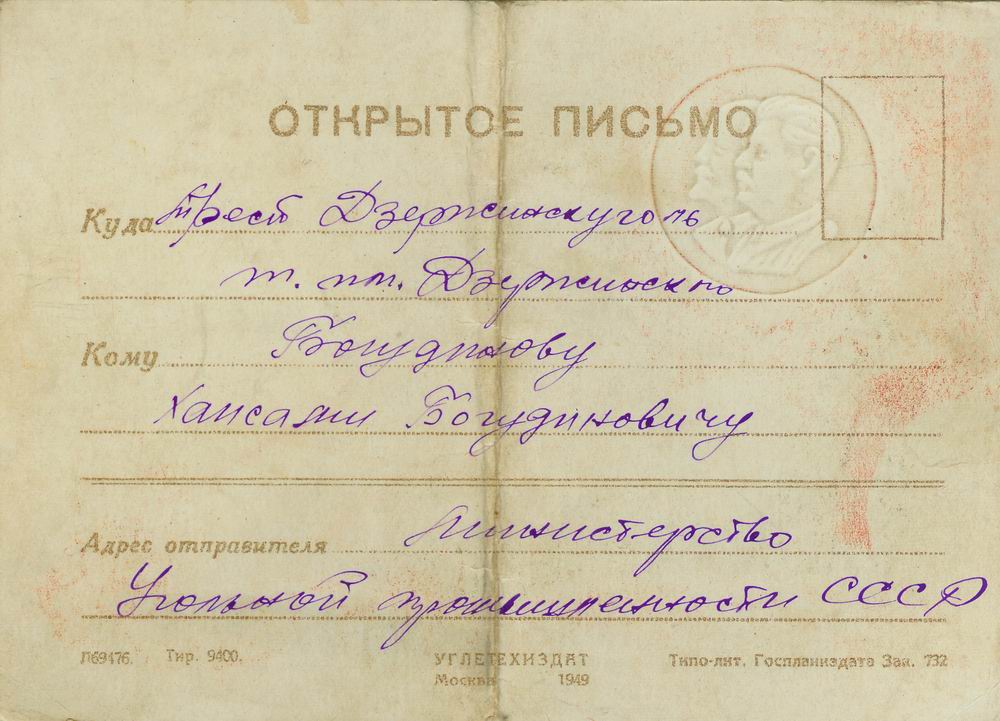 ОТКРЫТОЕ ПИСЬМО
Куда Трест Дзержинскуголь
т. им. Дзержинского
Кому Богудинову
Хамсаям Богудиновичу
Адрес отправителя Министерство
Угольной промышленности СССР
Л69476. Тир. 9400. УГЛЕТЕХИЗДАТ Типо-лит. Госпланиздата Зак. 732
Москва 1949